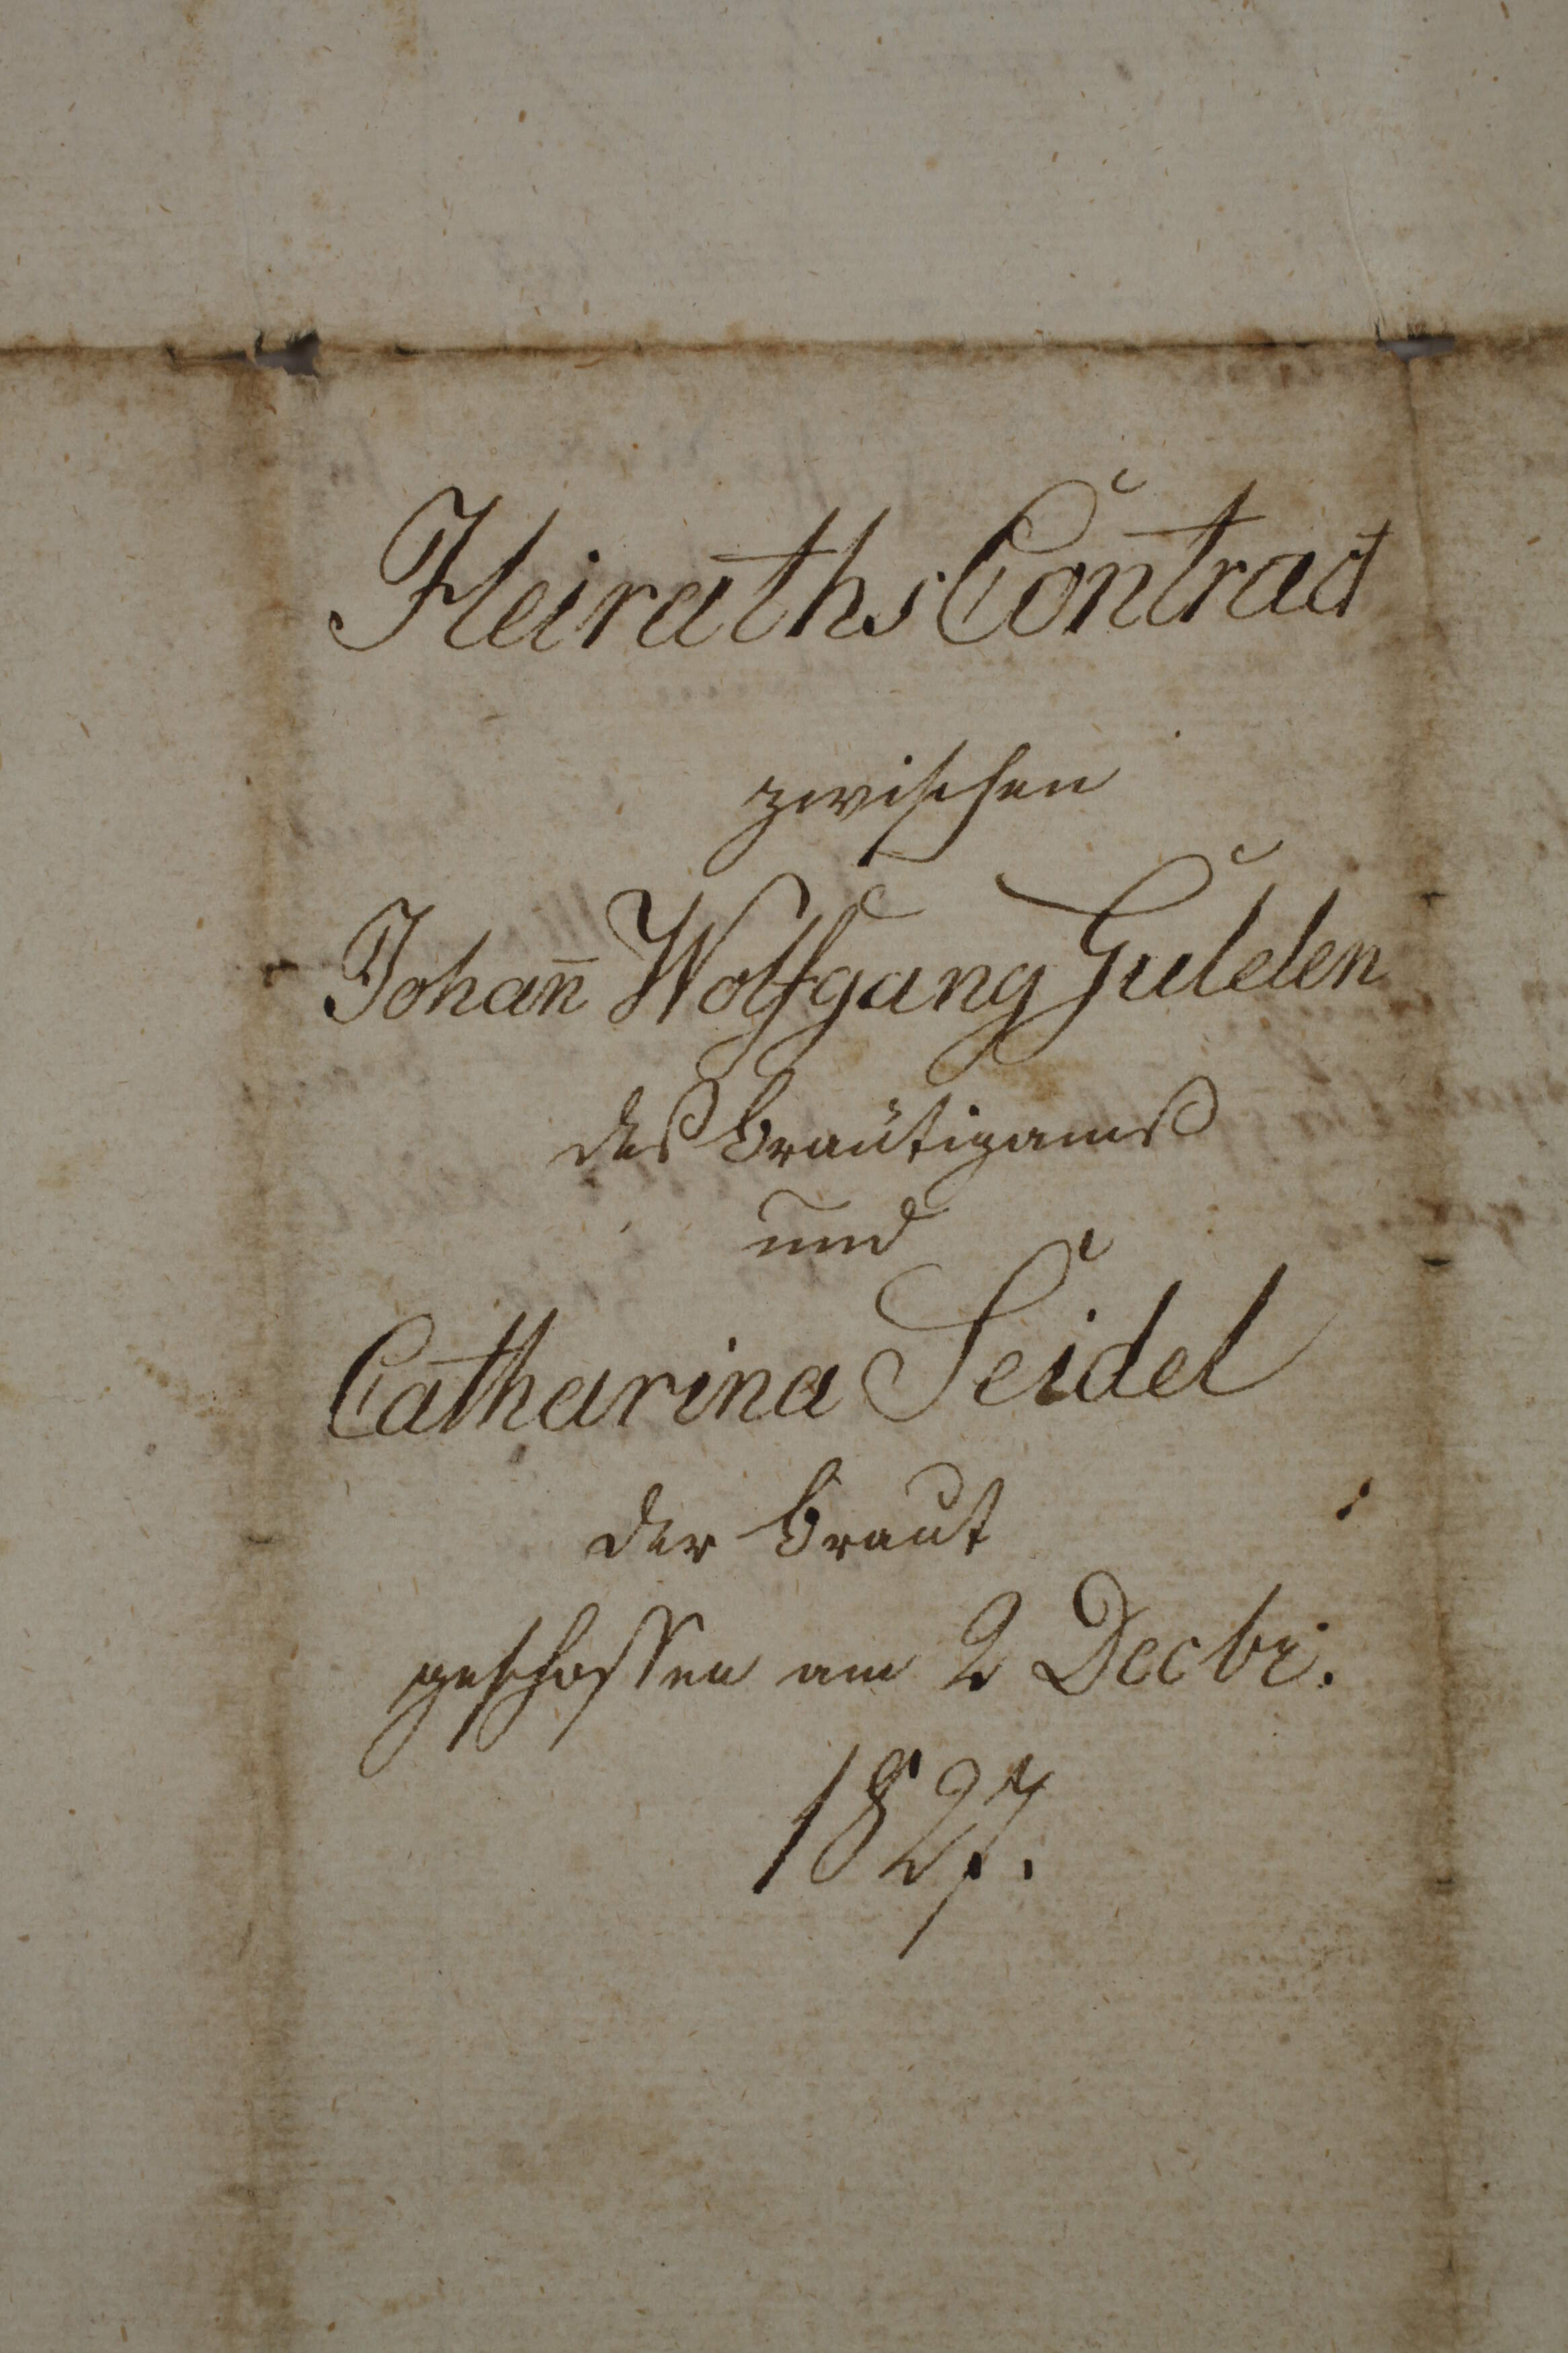 Heiraths Contract
zwischen
Johan̄ Wolfgang Gulden
deß Bräutigamß
und
Catharina Seidel
der Braut
geschossen am 2 Decbr.
1827.